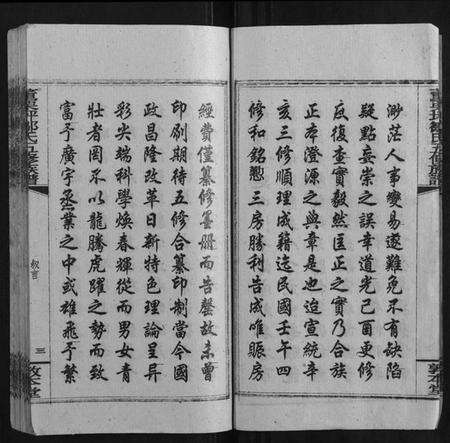 渺茫人事變易遂難免不有缺陷
疑點妄崇之誤幸道光己酉更修
底復查實毅然匡正之實乃合族
正本澄源之典章是也迨宣統辛
亥三修順理成籍迄民國壬午四
修和銘懇三房勝利告成唯賬房
經費僅纂修墨册而告罄故未曾
印刷期待五修合纂印制當今國
政昌隆改革日新特色理論呈异
彩尖端科學煥春輝從而男女青
壯者罔不以龍騰虎躍之勢而致
富于廣宇丞業之中或雄飛于繁
叙言
三
敦本堂
敦本堂